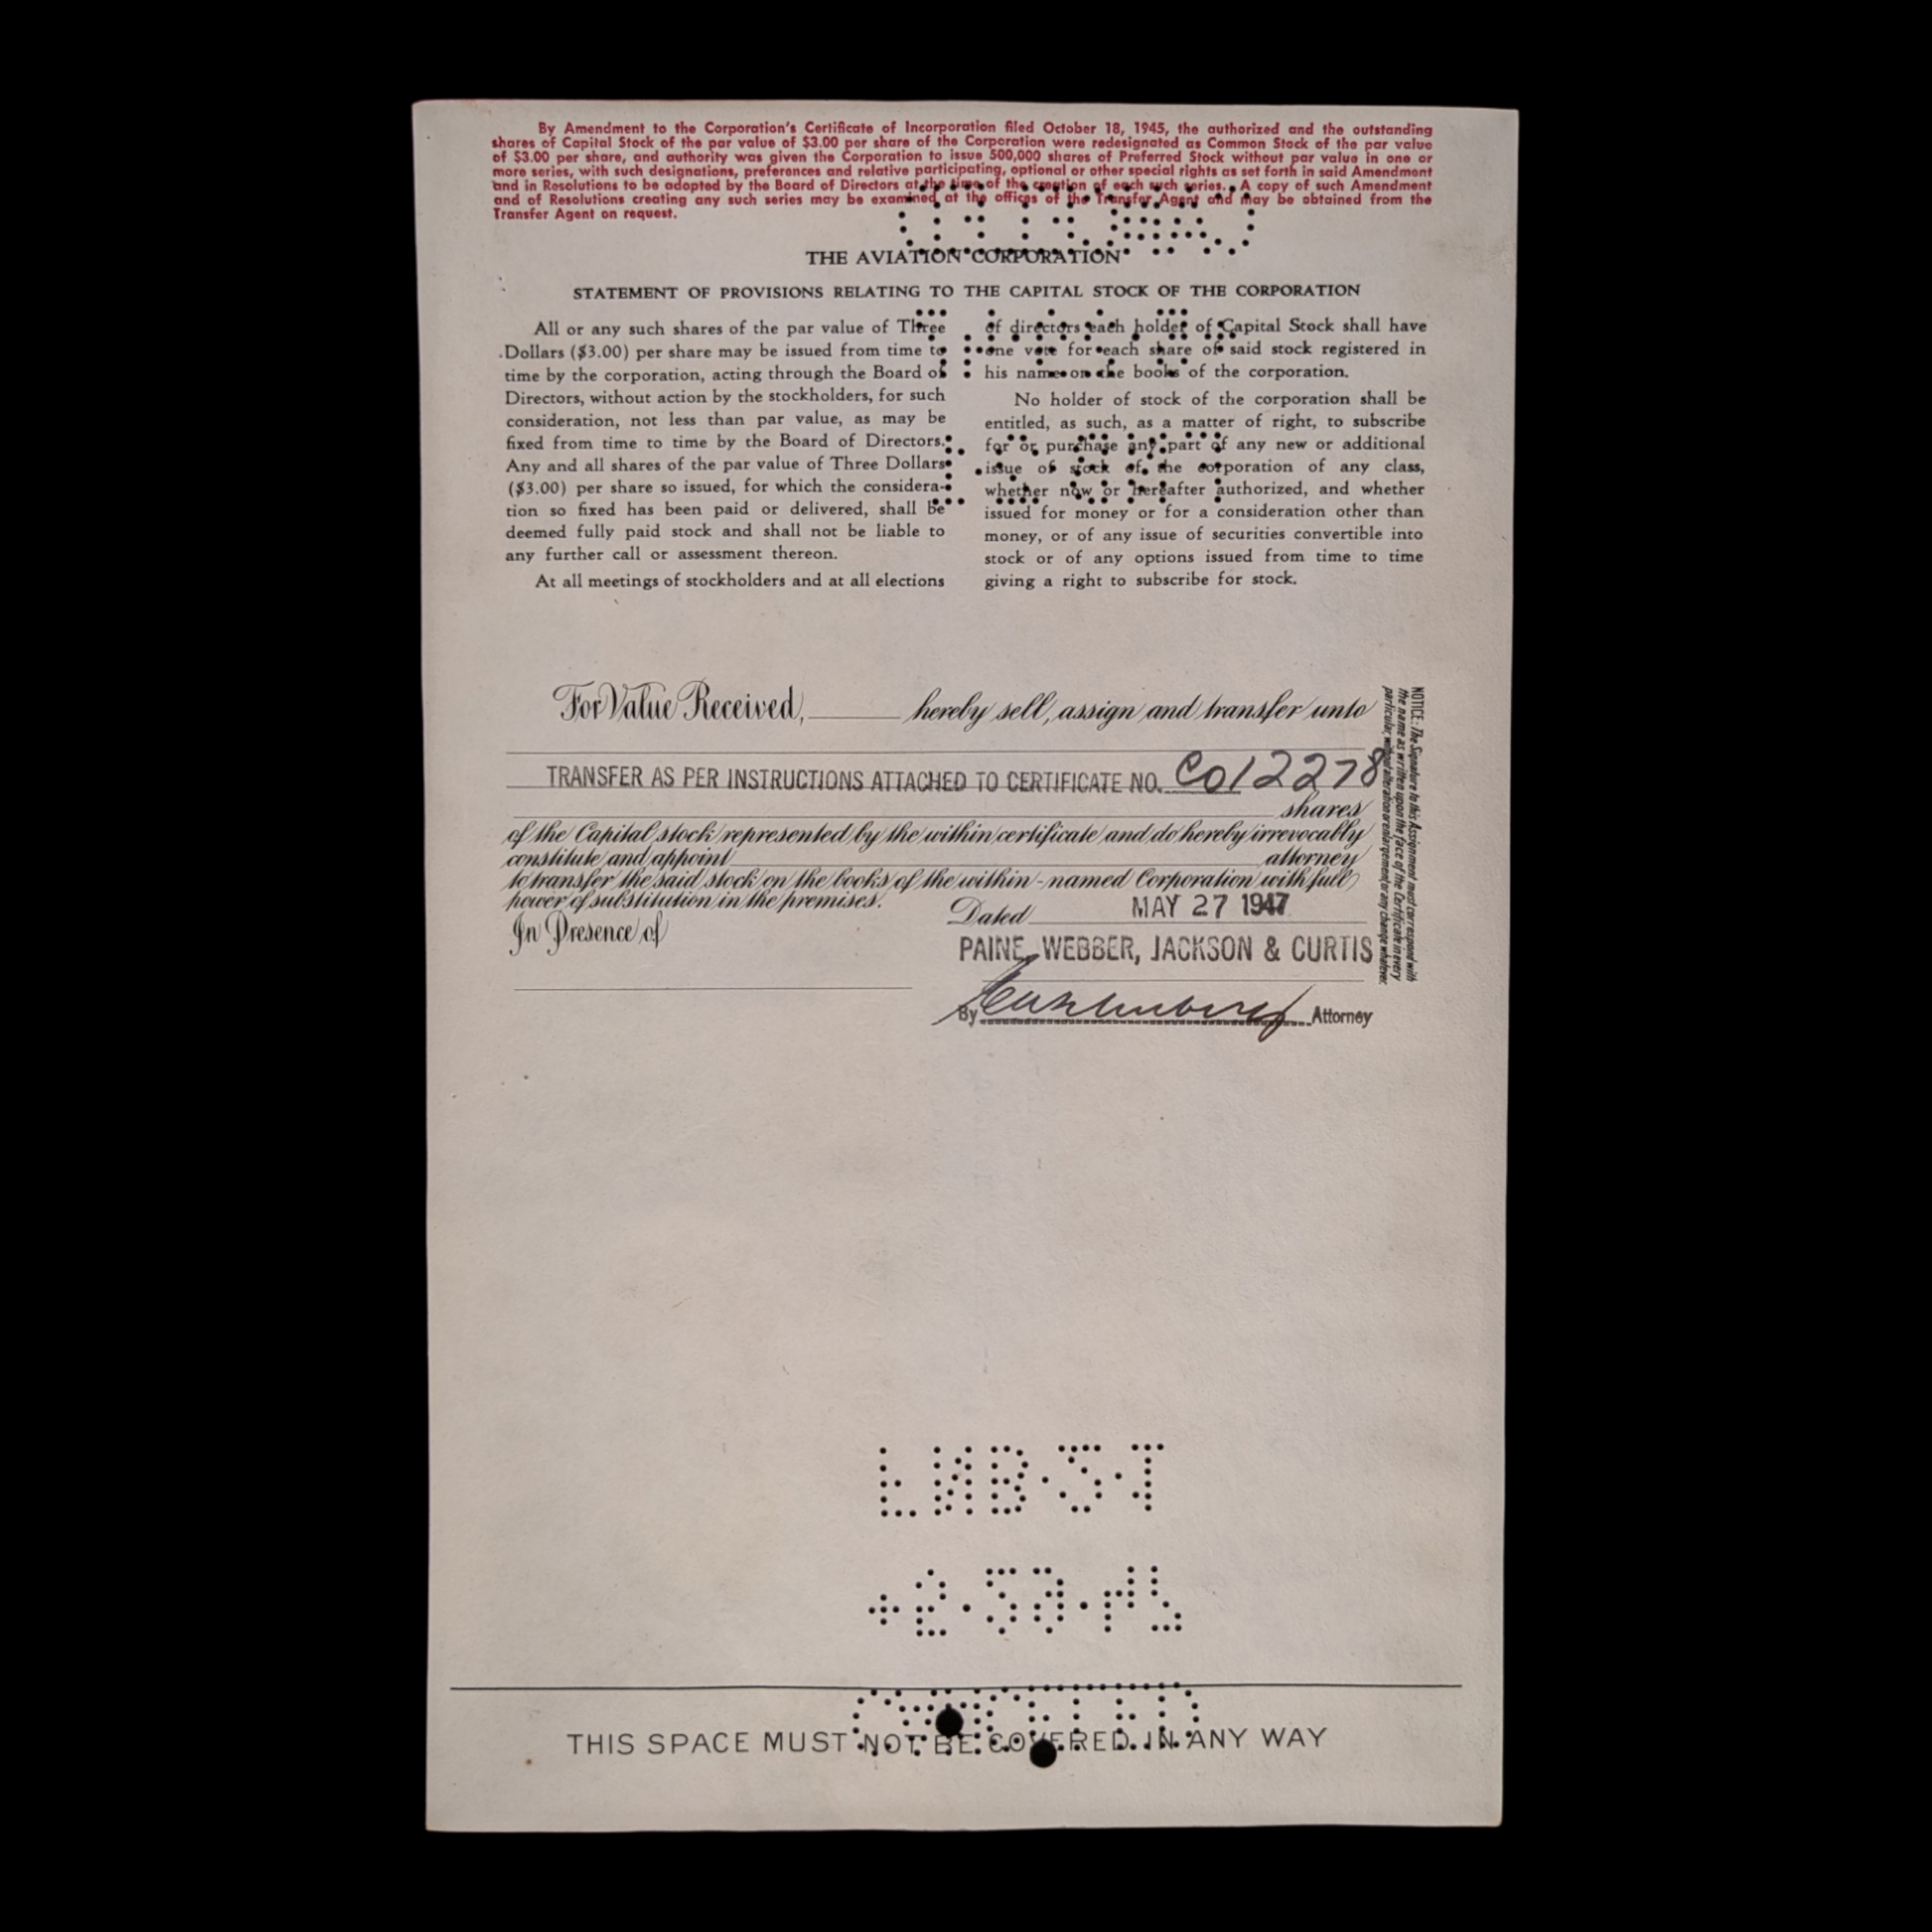 By Amendment to the Corporation's Certificate of Incorporation filed October 18, 1945, the authorized and the outstanding
shares of Capital Stock of the par value of $3.00 per share of the Corporation were redesignated as Common Stock of the par value
of $3.00 per share, and authority was given the Corporation to issue 500,000 shares of Preferred Stock without par value in one or
more series, with such designations, preferences and relative participating, optional or other special rights as set forth in said Amendment
and in Resolutions to be adopted by the Board of Directors at the time of the creation of each such series. A copy of such Amendment
and of Resolutions creating any such series may be examined at the offices of the Transfer Agent and may be obtained from the
Transfer Agent on request.
THE AVIATION CORPORATION
STATEMENT OF PROVISIONS RELATING TO THE CAPITAL STOCK OF THE CORPORATION
All or any such shares of the par value of Three
Dollars ($3.00) per share may be issued from time to
time by the corporation, acting through the Board of
Directors, without action by the stockholders, for such
consideration, not less than par value, as may be
fixed from time to time by the Board of Directors.
Any and all shares of the par value of Three Dollars
($3.00) per share so issued, for which the considera-
tion so fixed has been paid or delivered, shall be
deemed fully paid stock and shall not be liable to
any further call or assessment thereon.
At all meetings of stockholders and at all elections
of directors each holder of Capital Stock shall have
one vote for each share of said stock registered in
his name on the books of the corporation.
No holder of stock of the corporation shall be
entitled, as such, as a matter of right, to subscribe
for or purchase any part of any new or additional
issue of stock of the corporation of any class,
whether now or hereafter authorized, and whether
issued for money or for a consideration other than
money, or of any issue of securities convertible into
stock or of any options issued from time to time
giving a right to subscribe for stock.
For Value Received, hereby sell, assign and transfer unto
TRANSFER AS PER INSTRUCTIONS ATTACHED TO CERTIFICATE NO. CO12278
shares
of the Capital stock represented by the within certificate and do hereby irrevocably
constitute and appoint attorney
to transfer the said stock on the books of the within-named Corporation with full
power of substitution in the premises.
Dated MAY 27 1947
In Presence of
PAINE, WEBBER, JACKSON & CURTIS
By Attorney
NOTICE: The Signature to this Assignment must correspond with
the name as written upon the face of the Certificate in every
particular, without alteration or enlargement or any change whatever.
THIS SPACE MUST NOT BE COVERED IN ANY WAY